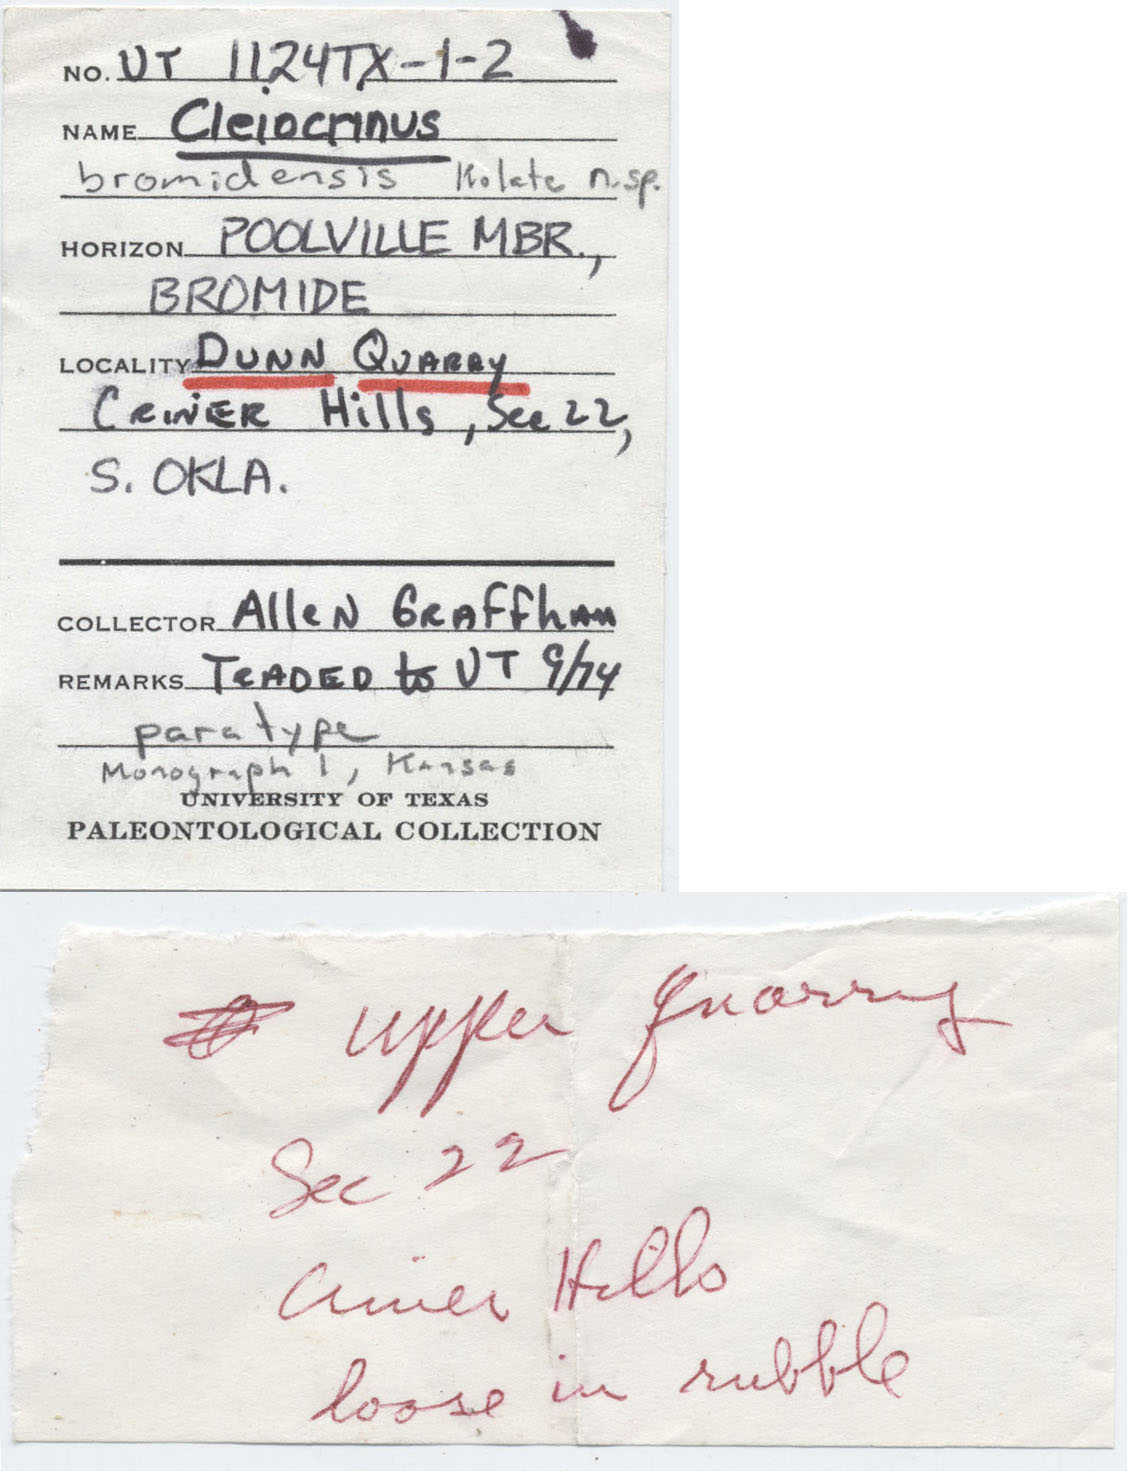 NO. UT 1124TX-1-2
NAME Cleiocrinus
bromidensis Kolata n.sp.
HORIZON POOLVILLE MBR.,
BROMIDE
LOCALITY DUNN QUARRY
CRINER Hills, Sec 22,
S. OKLA.
COLLECTOR Allen GRAFFhAM
REMARKS TRADED to UT 9/74
paratype
Monograph 1, Kansas
UNIVERSITY OF TEXAS
PALEONTOLOGICAL COLLECTION
upper quarry
Sec 22
Criner Hills
loose in rubble